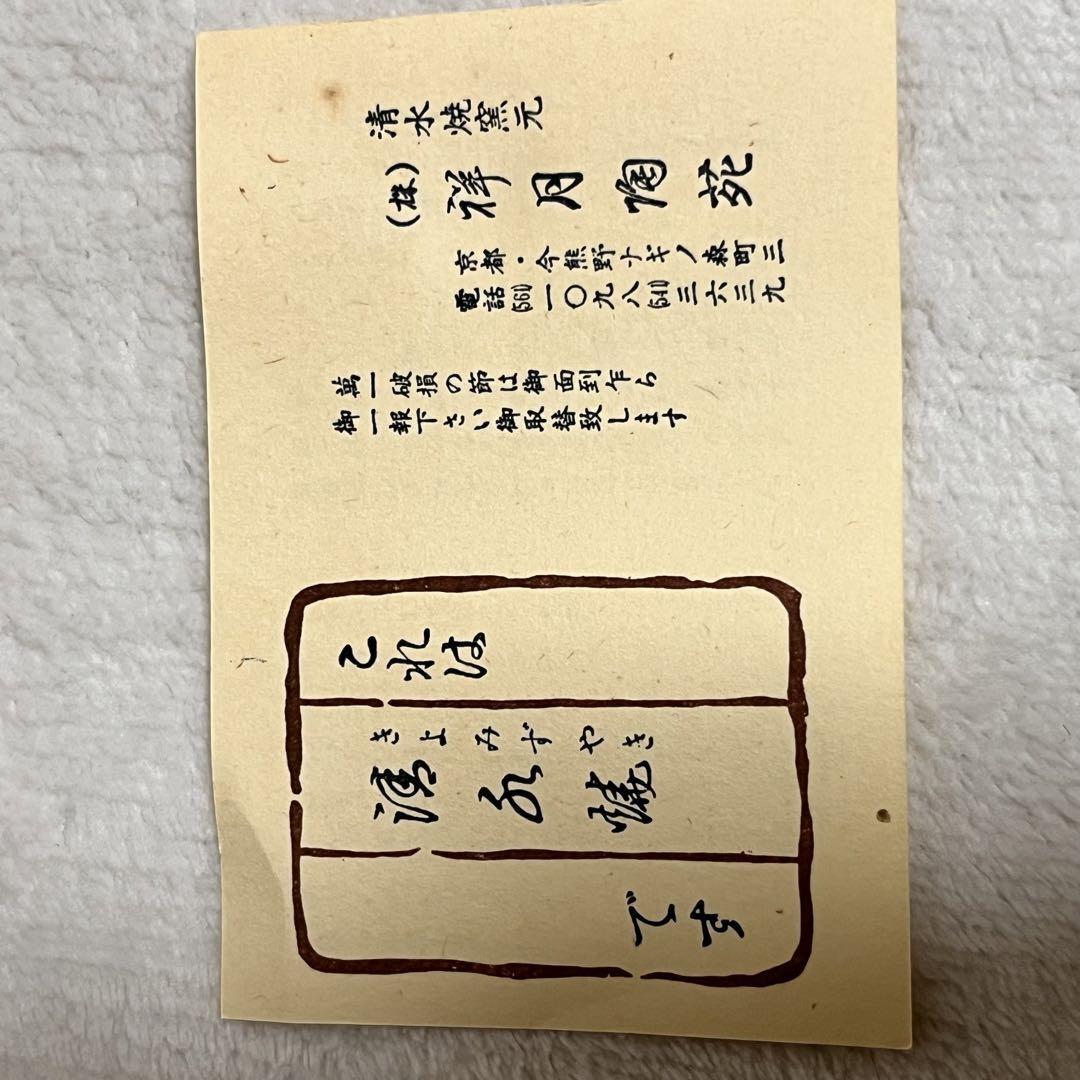 清水焼窯元
(株)祥月陶苑
京都・今熊野ナギノ森町三
電話(561)一〇九八(541)三六三九
萬一破損の節は御面到乍ら
御一報下さい御取替致します
これは
きよみずやき
清水焼
です